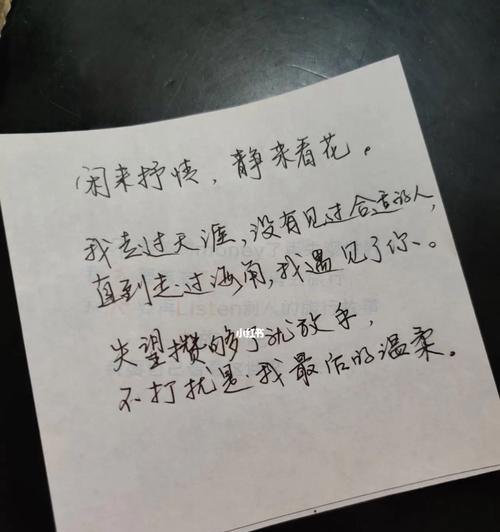 闲来抒情，静来看花。
我走过天涯，没有见过合适的人，
直到走过海角，我遇见了你、。
小红书
失望攒够了就放手，
不打扰是我最后的温柔。